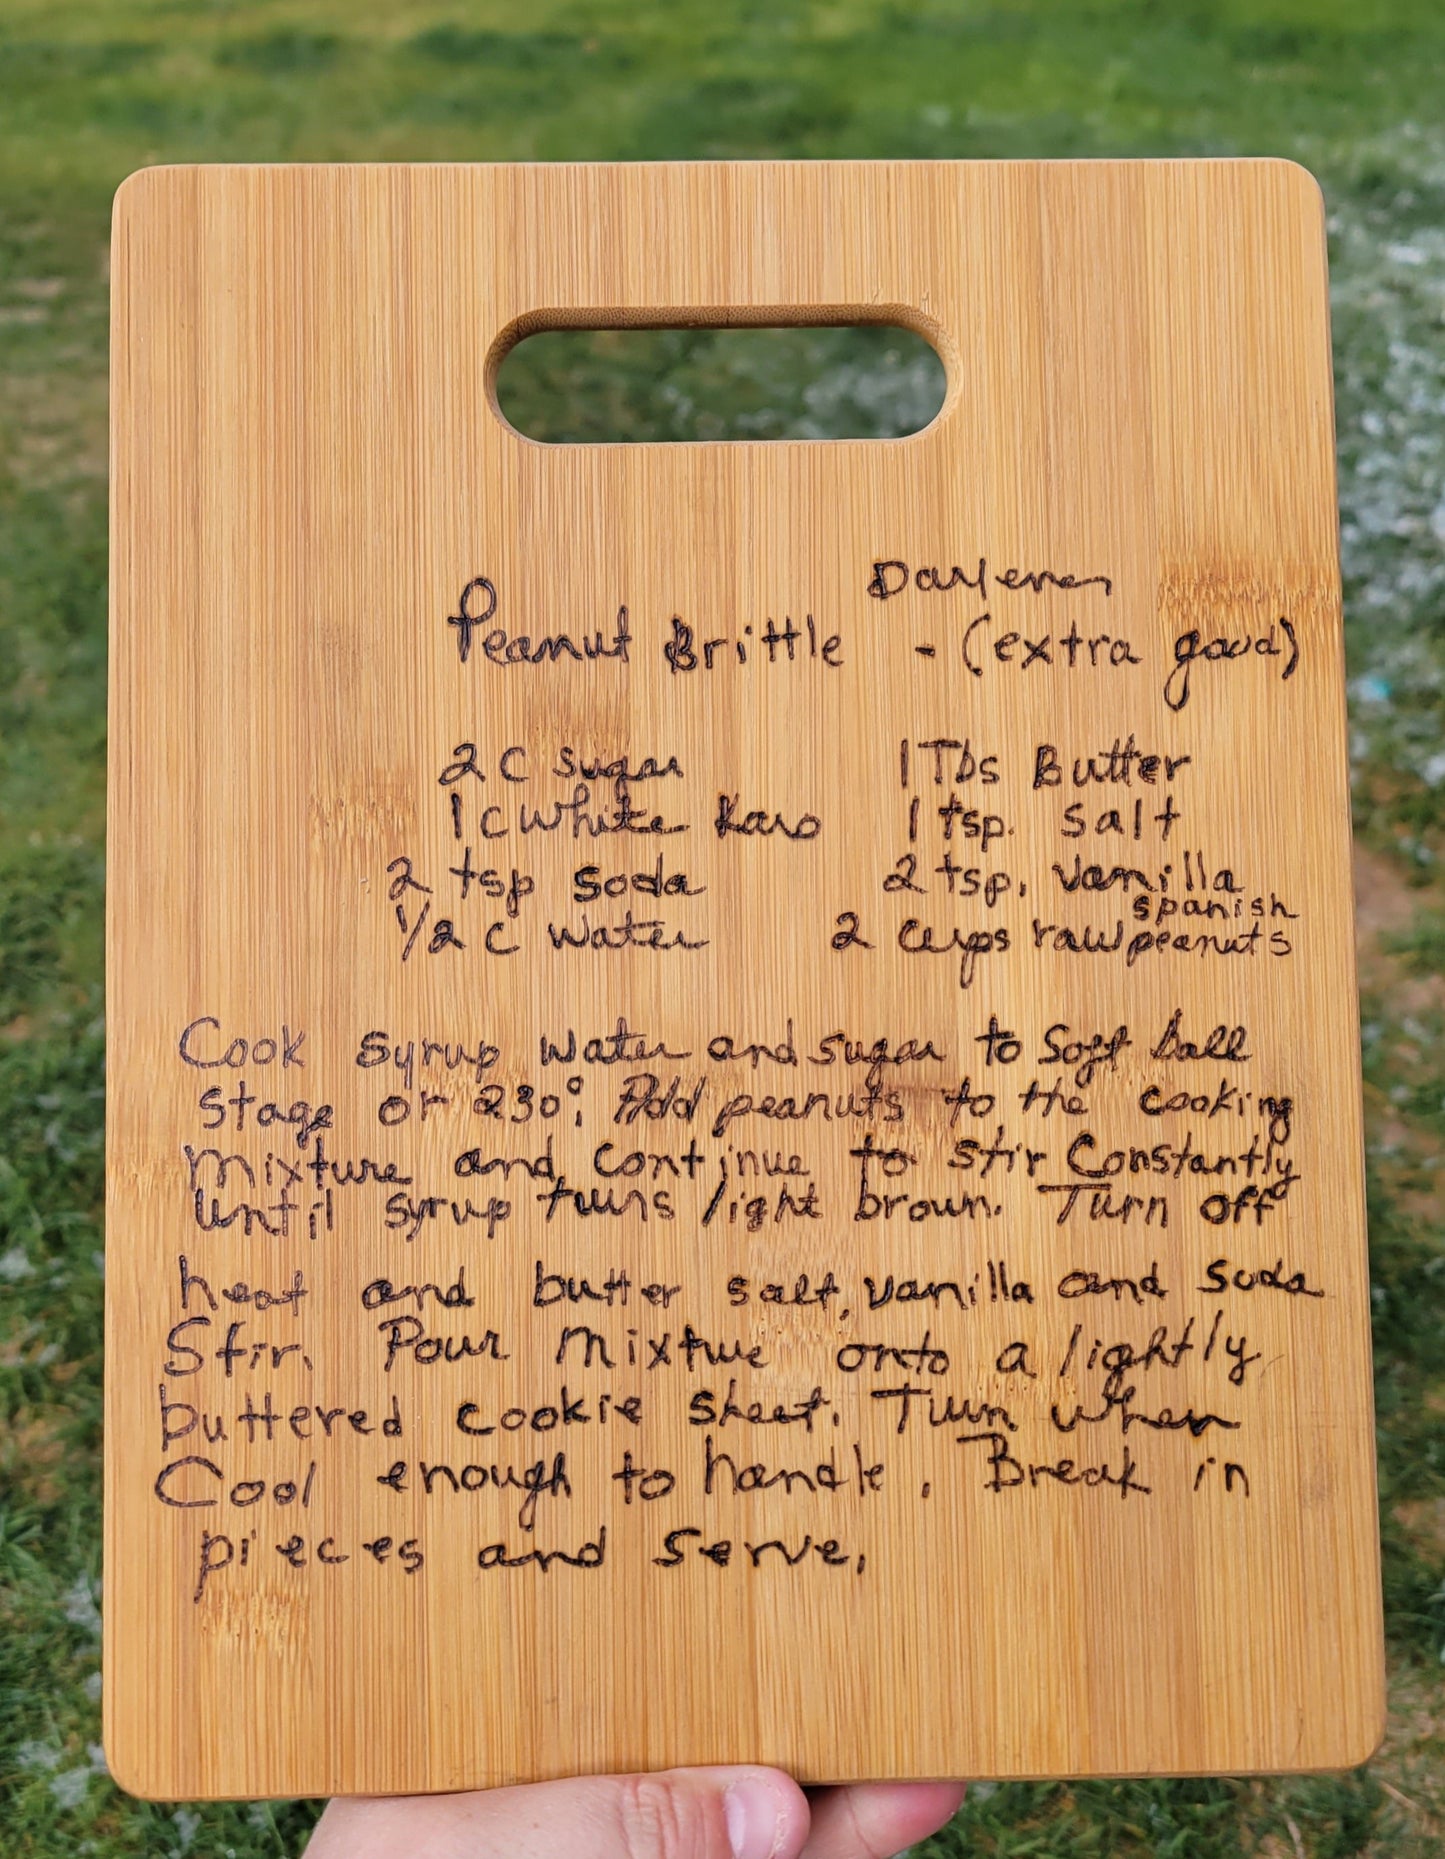 Darlenes
Peanut Brittle - (extra good)
2 C sugar 1 Tbs Butter
1 C white Karo 1 tsp. salt
2 tsp soda 2 tsp. vanilla
spanish
1/2 C water 2 cups raw peanuts
Cook syrup water and sugar to soft ball
stage or 230°; Add peanuts to the cooking
mixture and continue to stir Constantly
until syrup turns light brown. Turn off
heat and butter salt, vanilla and soda
Stir. Pour mixture onto a lightly
buttered cookie sheet. Turn when
Cool enough to handle. Break in
pieces and serve.